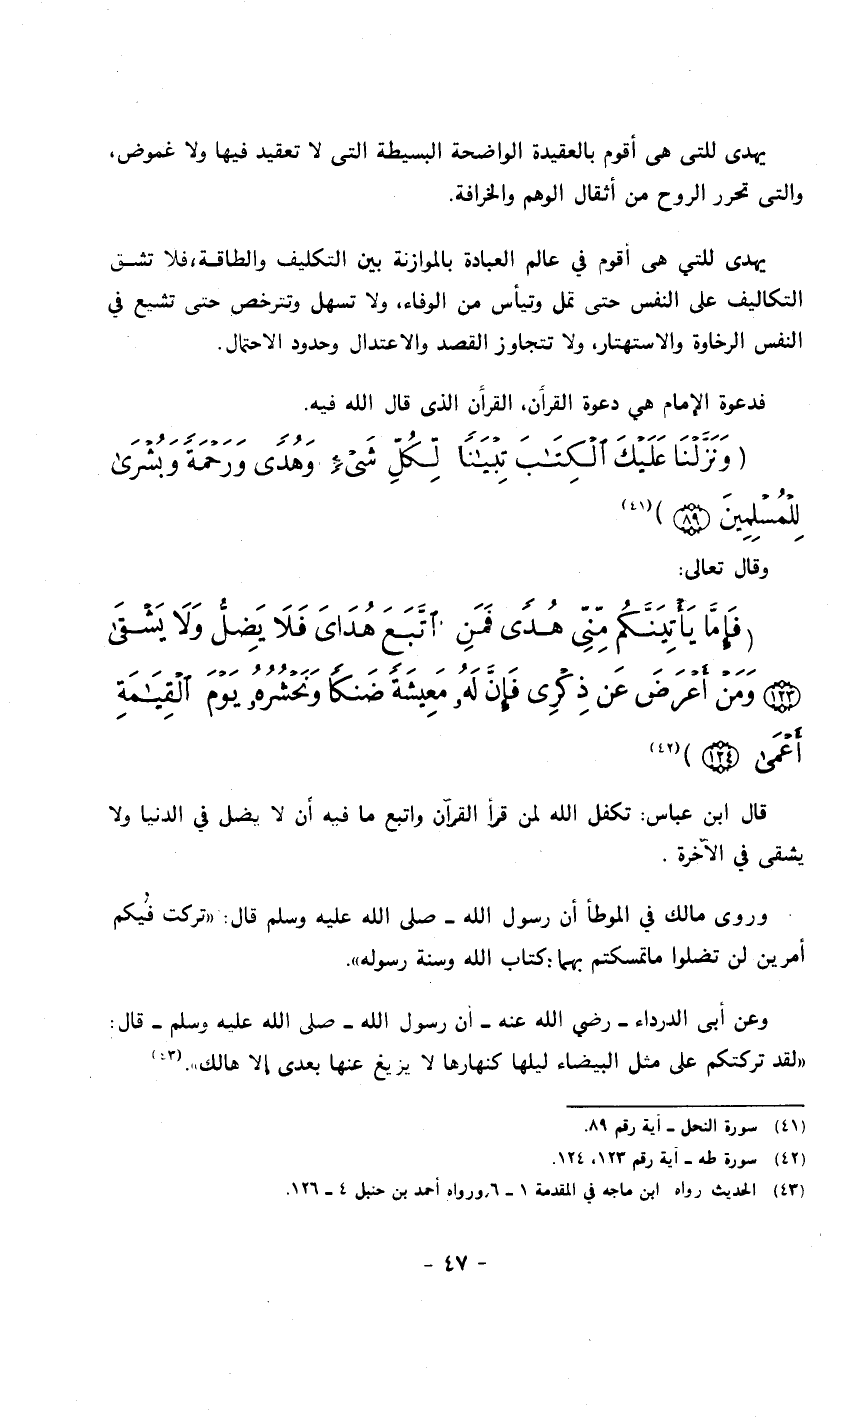 يهدى للتى هى أقوم بالعقيدة الواضحة البسيطة التى لا تعقيد فيها ولا غموض،
والتى تحرر الروح من أثقال الوهم والخرافة.
يهدى للتي هى أقوم في عالم العبادة بالموازنة بين التكليف والطاقة،فلا تشق
التكاليف على النفس حتى تمل وتيأس من الوفاء، ولا تسهل وتترخص حتى تشيع في
النفس الرخاوة والاستهتار، ولا تتجاوز القصد والاعتدال وحدود الاحتمال.
فدعوة الإمام هي دعوة القرأن، القرأن الذى قال الله فيه.
( وَنَزَّلْنَا عَلَيْكَ ٱلْكِتَٰبَ تِبْيَٰنًا لِّكُلِّ شَىْءٍ وَهُدًى وَرَحْمَةً وَبُشْرَىٰ
لِلْمُسْلِمِينَ ٨٩ )(٤١)
وقال تعالى:
( فَإِمَّا يَأْتِيَنَّكُم مِّنِّى هُدًى فَمَنِ ٱتَّبَعَ هُدَاىَ فَلَا يَضِلُّ وَلَا يَشْقَىٰ
١٢٣ وَمَنْ أَعْرَضَ عَن ذِكْرِى فَإِنَّ لَهُۥ مَعِيشَةً ضَنكًا وَنَحْشُرُهُۥ يَوْمَ ٱلْقِيَٰمَةِ
أَعْمَىٰ ١٢٤ )(٤٢)
قال ابن عباس: تكفل الله لمن قرأ القرآن واتبع ما فيه أن لا يضل في الدنيا ولا
يشقى في الآخرة .
وروى مالك في الموطأ أن رسول الله ـ صلى الله عليه وسلم قال: «تركت فيكم
أمرين لن تضلوا ماتمسكتم بهما:كتاب الله وسنة رسوله».
وعن أبى الدرداء ـ رضي الله عنه ـ أن رسول الله ـ صلى الله عليه وسلم ـ قال:
«لقد تركتكم على مثل البيضاء ليلها كنهارها لا يزيغ عنها بعدى إلا هالك».(٤٣)
(٤١) سورة النحل ـ أية رقم ٨٩.
(٤٢) سورة طه ـ أية رقم ١٢٣، ١٢٤.
(٤٣) الحديث رواه ابن ماجه في المقدمة ١ ـ ٦,ورواه أحمد بن حنبل ٤ ـ ١٢٦.
- ٤٧ -